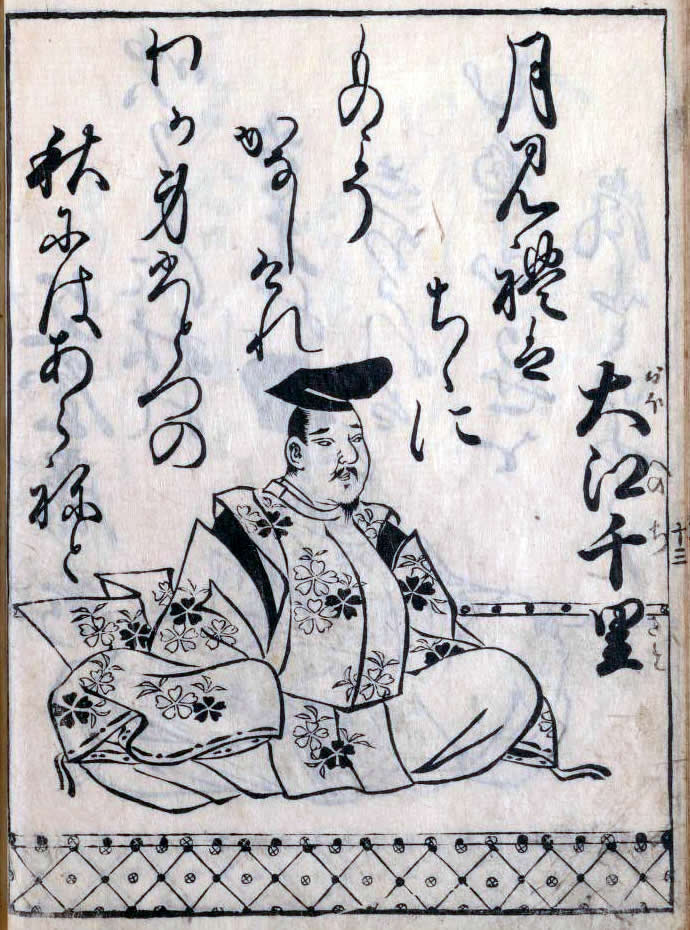 大江千里
おほへのちさと
月見禮は
ちゝに
ものこそ
かなしけれ
わか身ひとつの
秋にはあらねと
十三